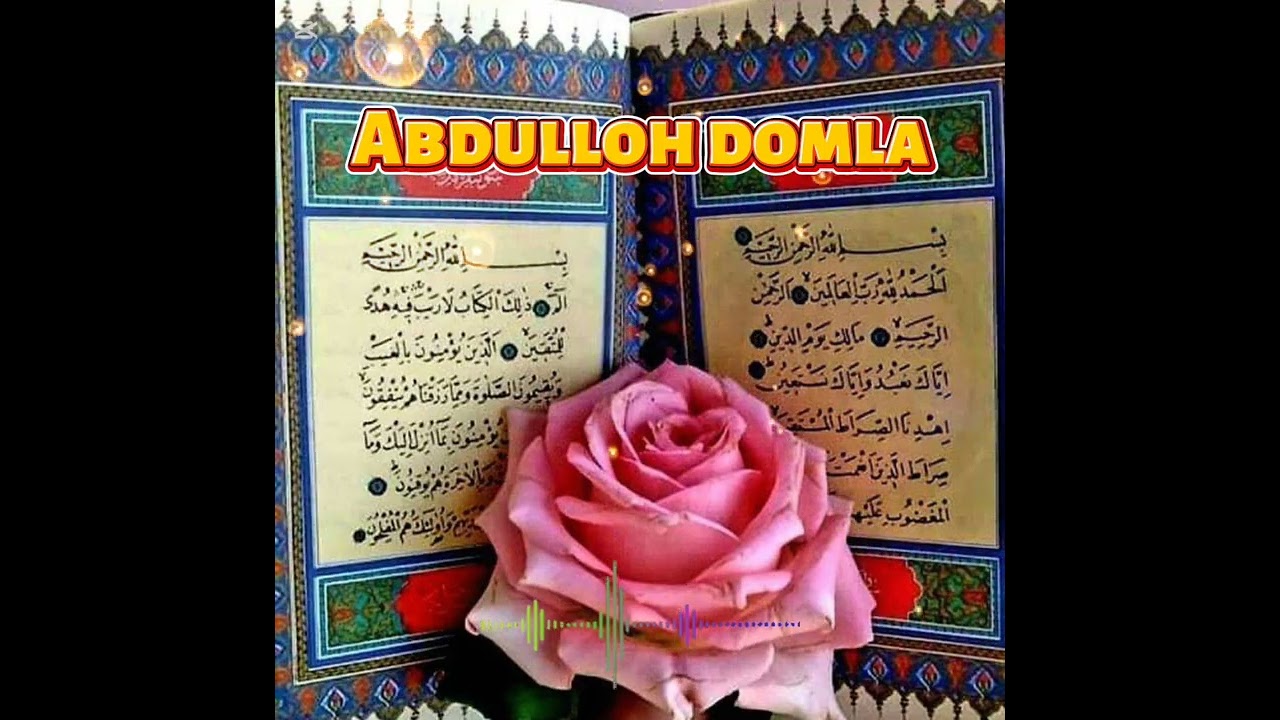 ABDULLOH DOMLA
بِسْمِ اللّٰهِ الرَّحْمٰنِ الرَّحِيمِ
اَلْحَمْدُ لِلّٰهِ رَبِّ الْعَالَمِينَ اَلرَّحْمٰنِ
الرَّحِيمِ مَالِكِ يَوْمِ الدِّينِ
اِيَّاكَ نَعْبُدُ وَاِيَّاكَ نَسْتَعِينُ
اِهْدِنَا الصِّرَاطَ الْمُسْتَقِيمَ
صِرَاطَ الَّذِينَ اَنْعَمْتَ
الْمَغْضُوبِ عَلَيْهِمْ
بِسْمِ اللّٰهِ الرَّحْمٰنِ الرَّحِيمِ
الٓمٓ ذٰلِكَ الْكِتَابُ لَا رَيْبَ فِيهِ هُدًى
لِلْمُتَّقِينَ اَلَّذِينَ يُؤْمِنُونَ بِالْغَيْبِ
وَيُقِيمُونَ الصَّلٰوةَ وَمِمَّا رَزَقْنَاهُمْ يُنْفِقُونَ
يُؤْمِنُونَ بِمَٓا اُنْزِلَ اِلَيْكَ وَمَٓا
وَبِالْاٰخِرَةِ هُمْ يُوقِنُونَ
وَاُولٰٓئِكَ هُمُ الْمُفْلِحُونَ